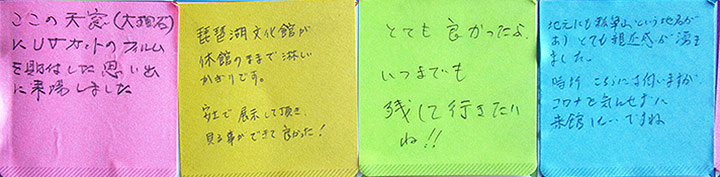 ここの天窓(大理石)
にUVカットのフィルム
を貼付した思い出
に来場しました
琵琶湖文化館が
休館のままで淋しい
かぎりです。
安土で展示して頂き、
見る事ができて良かった!
とても良かったよ
いつまでも
残して行きたい
ね!!
地元にも
という地名が
あり とても親近感が湧き
ました。
時折 こちらには伺いますが、
コロナを気にせずに
来館したいですね